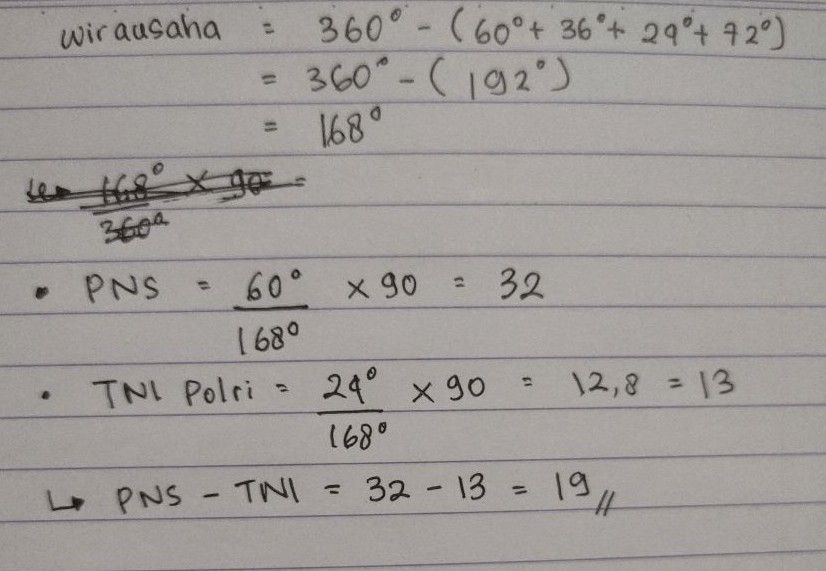 wirausaha = 360° - (60° + 36° + 24° + 72°)
= 360° - (192°)
= 168°
168° × 90 =
360°
• PNS = 60° × 90 = 32
168°
• TNI Polri = 24° × 90 = 12,8 = 13
168°
↳ PNS - TNI = 32 - 13 = 19 //